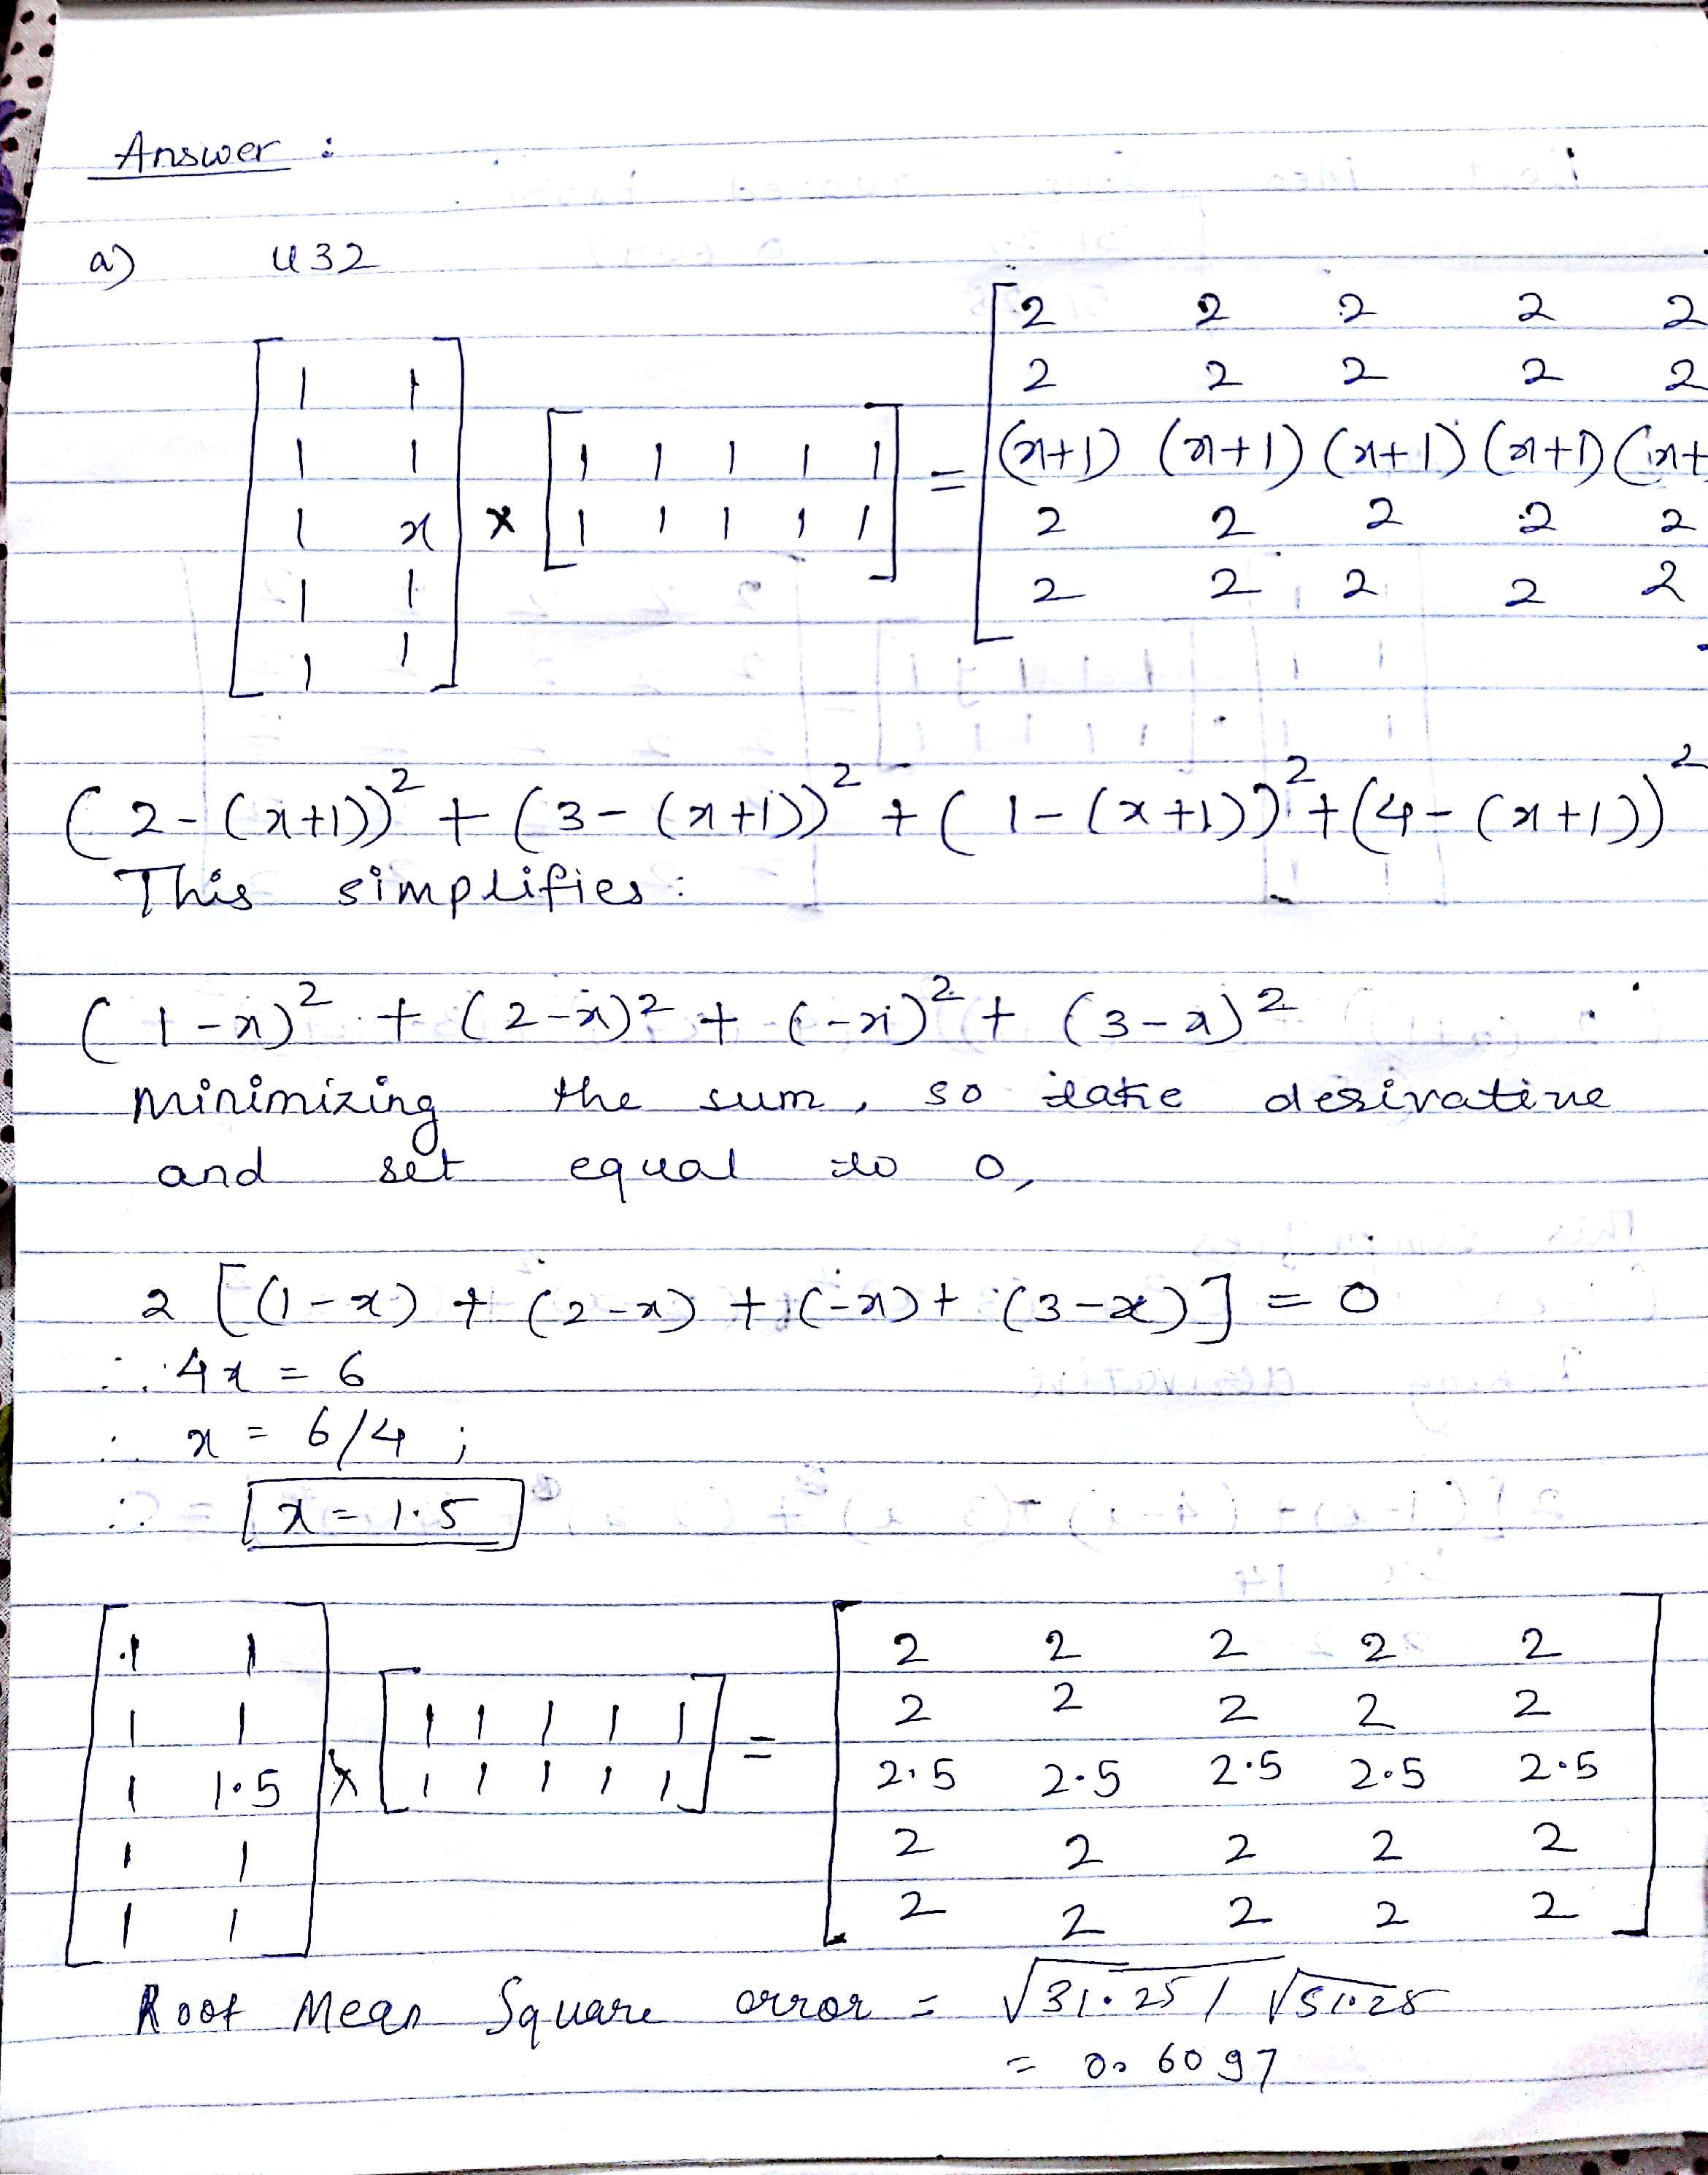 Answer :
a) U32
[ 1 1
1 1
1 x
1 1
1 1 ] × [ 1 1 1 1 1
1 1 1 1 1 ] = [ 2 2 2 2 2
2 2 2 2 2
(x+1) (x+1) (x+1) (x+1) (x+
2 2 2 2 2
2 2 2 2 2
(2-(x+1))² + (3-(x+1))² + (1-(x+1))² + (4-(x+1))²
This simplifies :
(1-x)² + (2-x)² + (-x)² + (3-x)²
Minimizing the sum, so take derivative
and set equal to 0,
2 [(1-x) + (2-x) + (-x) + (3-x)] = 0
∴ 4x = 6
∴ x = 6/4 ;
∴ x = 1.5
[ 1 1
1 1
1 1.5
1 1
1 1 ] × [ 1 1 1 1 1
1 1 1 1 1 ] = [ 2 2 2 2 2
2 2 2 2 2
2.5 2.5 2.5 2.5 2.5
2 2 2 2 2
2 2 2 2 2 ]
Root Mean Square error = √31.25 / √51.25
= 0.6097